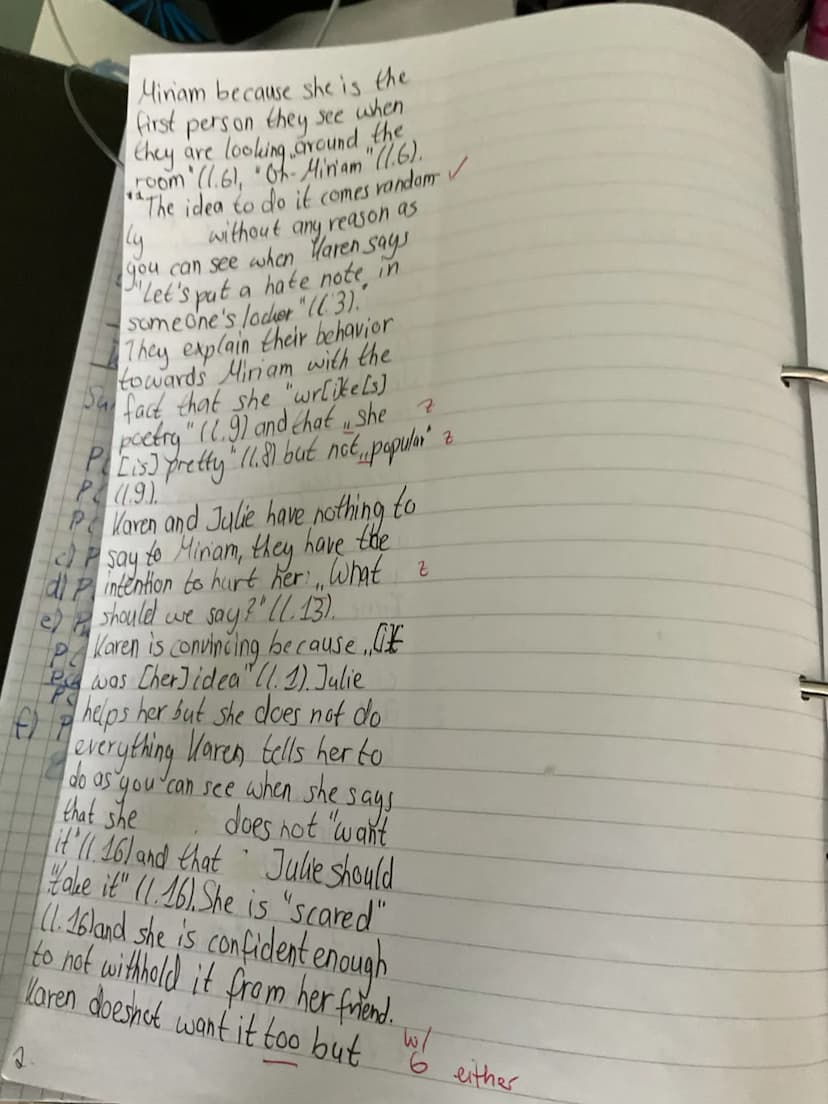 Miriam because she is the
first person they see when
they are looking „around the
room" (l.6), "Oh- Miriam" (l.6).
"The idea to do it comes random- ✓
ly without any reason as
you can see when Karen says
"Let's put a hate note in
someone's locker" (l.3).
They explain their behavior
towards Miriam with the
fact that she "wr[ike[s]
poetry" (l.9) and that „she z
[is] pretty" (l.8) but not „popular" z
(l.9).
Karen and Julie have nothing to
say to Miriam, they have the
intention to hurt her: „What z
should we say?" (l.13).
Karen is convincing because „[it
was [her] idea" (l.1). Julie
helps her but she does not do
everything Karen tells her to
do as you can see when she says
that she does not "want
it" (l.16) and that Julie should
"take it" (l.16). She is "scared"
(l.16) and she is confident enough
to not withhold it from her friend.
Karen does not want it too but w/
G either
2.
c) P
d) P
e) P
f) P